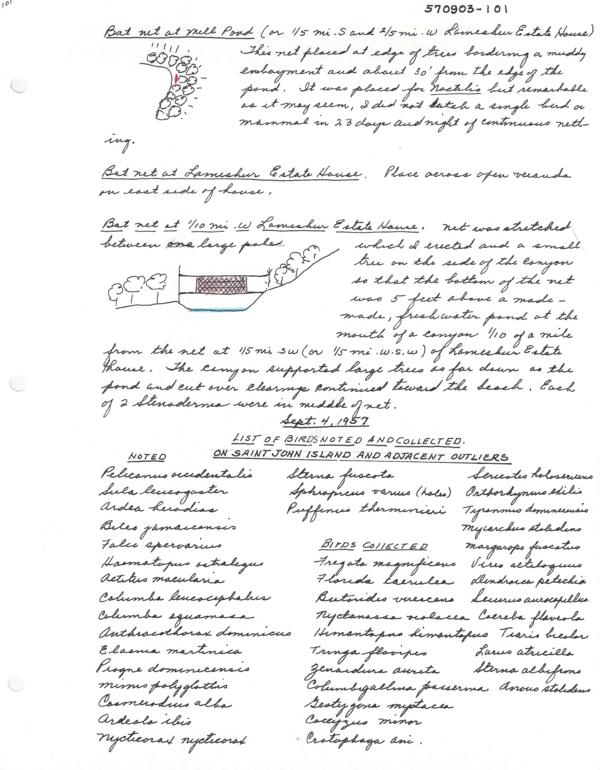 101
570903-101
Bat net at Mill Pond (or 1/5 mi. S and 2/5 mi. W Lameshur Estate House)
This net placed at edge of trees bordering a muddy
embayment and about 30' from the edge of the
pond. It was placed for Noctilio but remarkable
as it may seem, I did not catch a single bird or
mammal in 23 days and night of continuous nett-
ing.
Bat net at Lameshur Estate House. Place across open veranda
on east side of house.
Bat net at 1/10 mi. W Lameshur Estate House. Net was stretched
between one large pole which I erected and a small
tree on the side of the canyon
so that the bottom of the net
was 5 feet above a made-
made, freshwater pond at the
mouth of a canyon 1/10 of a mile
from the net at 1/5 mi. SW (or 1/5 mi. W.S.W) of Lameshur Estate
House. The canyon supported large trees as far down as the
pond and cut over clearings continued toward the beach. Each
of 2 Stenoderma were in middle of net.
Sept. 4, 1957
LIST OF BIRDS NOTED AND COLLECTED.
ON SAINT JOHN ISLAND AND ADJACENT OUTLIERS
NOTED
Pelicanus occidentalis
Sula leucogaster
Ardea herodias
Buteo jamaicensis
Falco sparvarius
Haematopus ostralegus
Actitis macularia
Columba leucocephalus
Columba squamosa
Anthracothorax dominicus
Elaenia martinica
Progne dominicensis
Mimus polyglottis
Casmerodius alba
Ardeola ibis
Nycticorax nycticorax
Sterna fuscata
Sphrapicus varius (holes)
Puffinus therminieri
BIRDS COLLECTED
Fregata magnificens
Florida caerulea
Butorides virescens
Nyctanassa violacea
Himantopus himantopus
Tringa flavipes
Zenaidura aurita
Columbigallina passerina
Geotygona mystacea
Coccyzus minor
Crotophaga ani.
Sericotes holosericeus
Orthorhyncus exilis
Tyrannus dominicensis
Myiarchus stolidus
Margarops fuscatus
Vireo
Dendroica petechia
Seiurus aurocapillus
Coereba flaveola
Tiaris bicolor
Larus atricilla
Sterna albifrons
Anous stolidus